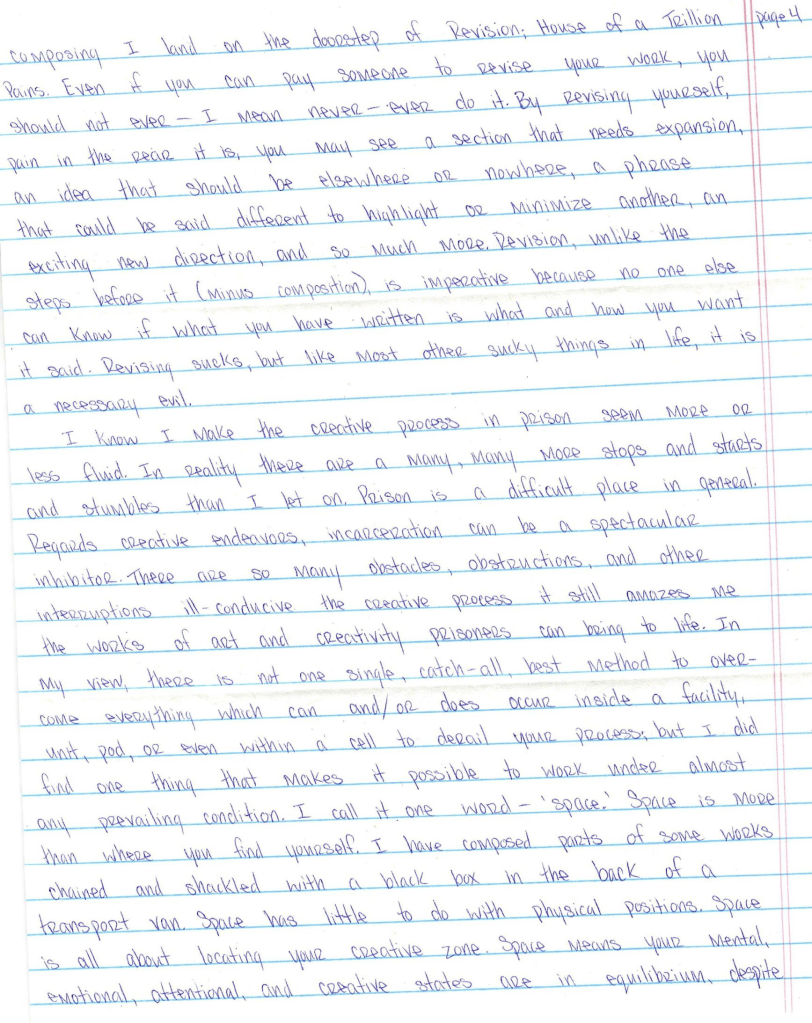 composing I land on the doorstep of Revision; House of a Trillion page 4
Pains. Even if you can pay someone to revise your work, you
should not ever – I mean never – ever do it. By revising yourself,
pain in the rear it is, you may see a section that needs expansion,
an idea that should be elsewhere or nowhere, a phrase
that could be said different to highlight or minimize another, an
exciting new direction, and so much more. Revision, unlike the
steps before it (minus composition), is imperative because no one else
can know if what you have written is what and how you want
it said. Revising sucks, but like most other sucky things in life, it is
a necessary evil.
I know I make the creative process in prison seem more or
less fluid. In reality there are a many, many more stops and starts
and stumbles than I let on. Prison is a difficult place in general.
Regards creative endeavors, incarceration can be a spectacular
inhibitor. There are so many obstacles, obstructions, and other
interruptions ill-conducive the creative process it still amazes me
the works of art and creativity prisoners can bring to life. In
my view, there is not one single, catch-all, best method to over-
come everything which can and/or does occur inside a facility,
unit, pod, or even within a cell to derail your process; but I did
find one thing that makes it possible to work under almost
any prevailing condition. I call it one word – 'space.' Space is more
than where you find yourself. I have composed parts of some works
chained and shackled with a black box in the back of a
transport van. Space has little to do with physical positions. Space
is all about locating your creative zone. Space means your mental,
emotional, attentional, and creative states are in equilibrium, despite